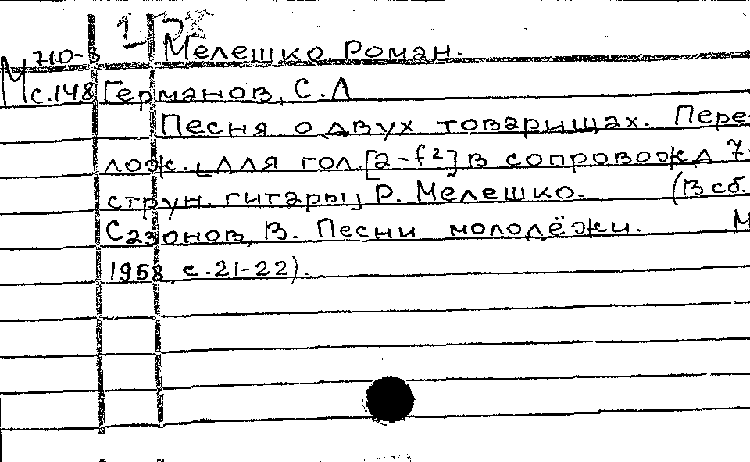 Мелешко Роман.
М 710-
с.148 Германов, С. Л
Песня о двух товарищах. Пере-
лож. [для гол. [a-f²] в сопровожд 7-
струн. гитары] Р. Мелешко. (В сб.
Сазонов, В. Песни молодёжи. М
1958, с. 21-22).